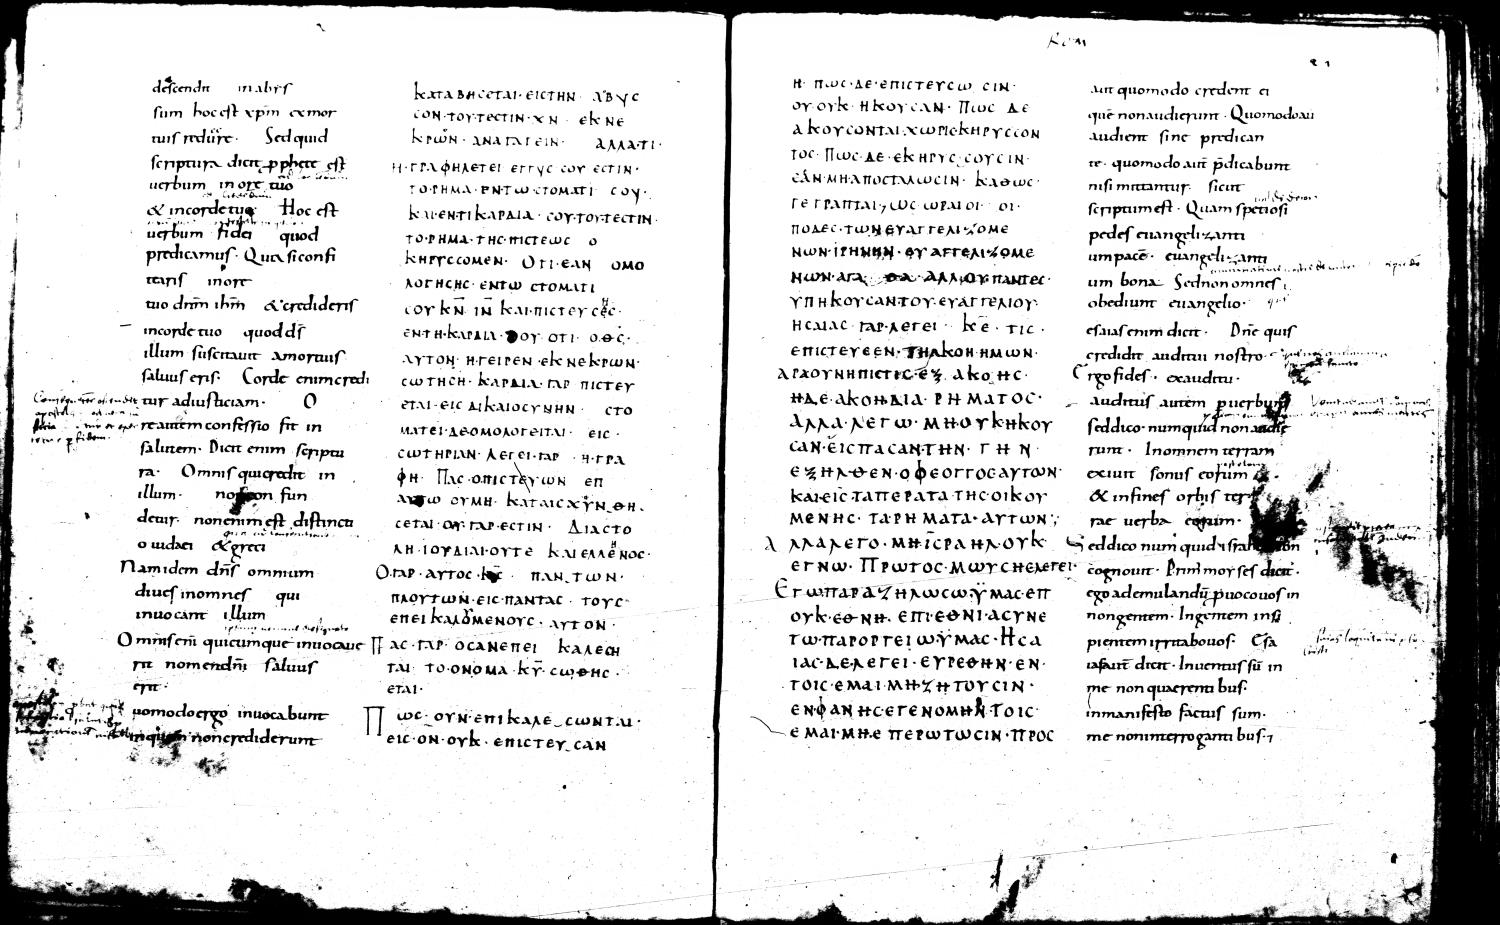 descendit in abys
sum hoc est xpm ex mor
tuis redu͞ire· Sed quid
scriptura dicit
uerbum in ore tuo
& in corde tuo Hoc est
uerbum fidei quod
predicamus· Quia si confi
teris in ore
tuo dn̄m ihm̄ & credideris
in corde tuo quod ds̄
illum suscitauit a mortuis
saluus eris· Corde enim credi
tur ad iusticiam· O
re autem confessio fit in
salutem· Dicit enim scriptu
ra· Omnis qui credit in
illum· non con fun
detur· non enim est distinctı
o iudaei & greci
Nam idem dn̄s omnium
diues in omnes qui
inuocant illum
Omnis en̄i quicumque inuocaue
rit nomen dn̄i saluus
erit·
uomodo ergo inuocabunt
in quem non crediderunt
ΚΑΤΑΒΗCΕΤΑΙ·ΕΙCΤΗΝ ΑΒΥC
CΟΝ·ΤΟΥ·ΤΕCΤΙΝ·ΧΝ· ΕΚ ΝΕ
ΚΡΩΝ· ΑΝΑΓΑΓΕΙΝ· ΑΛΛΑ·ΤΙ·
Η·ΓΡΑΦΗΛΕΓΕΙ ΕΓΓΥC CΟΥ ΕCΤΙΝ·
ΤΟ·ΡΗΜΑ·ΕΝΤΩ·CΤΟΜΑΤΙ CΟΥ·
ΚΑΙ·ΕΝ·ΤΙ ΚΑΡΔΙΑ· CΟΥ·ΤΟΥ·ΤΕCΤΙΝ·
ΤΟ·ΡΗΜΑ·ΤΗC·ΠΙCΤΕΩC Ο
ΚΗΡΥCCΟΜΕΝ· ΟΤΙ·ΕΑΝ ΟΜΟ
ΛΟΓΗCΗC·ΕΝΤΩ CΤΟΜΑΤΙ
CΟΥ ΚΝ̄ ΙΝ̄ ΚΑΙ·ΠΙCΤΕΥCΗC·
ΕΝ·ΤΗ·ΚΑΡΔΙΑ· CΟΥ ΟΤΙ· Ο·ΘC·
ΑΥΤΟΝ·ΗΓΕΙΡΕΝ·ΕΚ ΝΕΚΡΩΝ·
CΩΤΗCΗ· ΚΑΡΔΙΑ·ΓΑΡ ΠΙCΤΕΥ
ΕΤΑΙ·ΕΙC ΔΙΚΑΙΟCΥΝΗΝ· CΤΟ
ΜΑΤΕΙ·ΔΕΟΜΟΛΟΓΕΙΤΑΙ· ΕΙC·
CΩΤΗΡΙΑΝ· ΛΕΓΕΙ·ΓΑΡ ·Η·ΓΡΑ
ΦΗ· ΠΑC·Ο·ΠΙCΤΕΥΩΝ ΕΠ
ΑΥΤΩ ΟΥ ΜΗ· ΚΑΤΑΙCΧΥΝΘΗ·
CΕΤΑΙ·ΟΥ·ΓΑΡ·ΕCΤΙΝ· ΔΙΑCΤΟ
ΛΗ·ΙΟΥΔΙΑΙ·ΟΥΤΕ ΚΑΙ ΕΛΛΕΝΟC·
Ο·ΓΑΡ·ΑΥΤΟC·ΚC· ΠΑΝ·ΤΩΝ·
ΠΛΟΥΤΩΝ·ΕΙC·ΠΑΝΤΑC· ΤΟΥC·
ΕΠΕΙ ΚΑΛΟΜΕΝΟΥC· ΑΥΤΟΝ·
ΠΑC·ΓΑΡ· ΟCΑΝΕΠΕΙ ΚΑΛΕCΗ
ΤΑΙ· ΤΟ·ΟΝΟΜΑ·ΚΥ·CΩΘΗC·
ΕΤΑΙ·
ΠΩC·ΟΥΝ·ΕΠΙΚΑΛΕCΩΝΤΑΙ·
ΕΙC·ΟΝ·ΟΥΚ· ΕΠΙCΤΕΥCΑΝ
Rom
Η· ΠΩC·ΔΕ·ΕΠΙCΤΕΥCΩCΙΝ·
ΟΥ·ΟΥΚ·ΗΚΟΥCΑΝ· ΠΩC ΔΕ
ΑΚΟΥCΟΝΤΑΙ·ΧΩΡΙC ΚΗΡΥCCΟΝ
ΤΟC· ΠΩC·ΔΕ·ΕΚΗΡΥC·CΟΥCΙΝ·
ΕΑΝ·ΜΗ·ΑΠΟCΤΑΛΩCΙΝ· ΚΑΘΩC·
ΓΕΓΡΑΠΤΑΙ·ΩC·ΩΡΑΙΟΙ· ΟΙ·
ΠΟΔΕC·ΤΩΝ ΕΥΑΓΓΕΛΙΖΟΜΕ
ΝΩΝ·ΙΡΗΝΗΝ·ΕΥΑΓΓΕΛΙΖΟΜΕ
ΝΩΝ·ΑΓΑΘΑ·ΑΛΛ ΟΥ ΠΑΝΤΕC·
ΥΠΗΚΟΥCΑΝ·ΤΟΥ·ΕΥΑΓΓΕΛΙΟΥ·
ΗCΑΙΑC·ΓΑΡ·ΛΕΓΕΙ· ΚΕ̄· ΤΙC·
ΕΠΙCΤΕΥCΕΝ·ΤΗ ΑΚΟΗ ΗΜΩΝ·
ΑΡΑ ΟΥΝ Η ΠΙCΤΙC·ΕΞ ΑΚΟΗC·
Η ΔΕ·ΑΚΟΗ ΔΙΑ·ΡΗΜΑΤΟC·
ΑΛΛΑ·ΛΕΓΩ·ΜΗ ΟΥΚ ΗΚΟΥ
CΑΝ·ΕΙC ΠΑCΑΝ·ΤΗΝ· ΓΗΝ·
ΕΞΗΛΘΕΝ·Ο ΦΘΟΓΓΟC ΑΥΤΩΝ·
ΚΑΙ·ΕΙC ΤΑ ΠΕΡΑΤΑ·ΤΗC·ΟΙΚΟΥ
ΜΕΝΗC· ΤΑ·ΡΗΜΑΤΑ·ΑΥΤΩΝ·
ΑΛΛΑ ΛΕΓΟ· ΜΗ ΙCΡΑΗΛ·ΟΥΚ
ΕΓΝΩ· ΠΡΩΤΟC ΜΩΥCΗC ΛΕΓΕΙ·
ΕΓΩ ΠΑΡΑΖΗΛΩCΩ ΫΜΑC·ΕΠ
ΟΥΚ·ΕΘΝΗ· ΕΠΙ·ΕΘΝΙ·ΑCΥΝΕ
ΤΩ·ΠΑΡΟΡΓΕΙΩ ΫΜΑC· ΗCΑ
ΙΑC·ΔΕ·ΛΕΓΕΙ· ΕΥΡΕΘΗΝ·ΕΝ·
ΤΟΙC·ΕΜΑΙ·ΜΗ·ΖΗΤΟΥCΙΝ·
ΕΝΦΑΝΗC·ΕΓΕΝΟΜΗΝ·ΤΟΙC·
ΕΜΑΙ·ΜΗ·ΕΠΕΡΩΤΩCΙΝ·ΠΡΟC
aut quomodo credent ei
quē non audierunt· Quomodo au
audient sine predican
te· quomodo aut̄ p̄dicabunt
nisi mittantur· sicut
scriptum est· Quam spetiosi
pedes euangelizanti
um pacē· euangelizanti
um bona Sed non omnes
obediunt euangelio·
esaias enim dicit· Dn̄e quis
credidit auditui nostro·
Ergo fides· ex auditu·
auditus autem p uerbum
sed dico·numquid non audie
runt· In omnem terram
exiuit sonus eorum
& in fines orbis ter
rae uerba eorum·
Sed dico num quid israhel non
cognouit· Prim̄ moyses dicit·
ego ad emulandū puocouos in
non gentem· In gentem insi
pientem irritabo uos· Esa
ias aut̄ dicit· Inuentus sū in
me non quaerenti bus·
in manifesto factus sum·
me non interroganti bus·